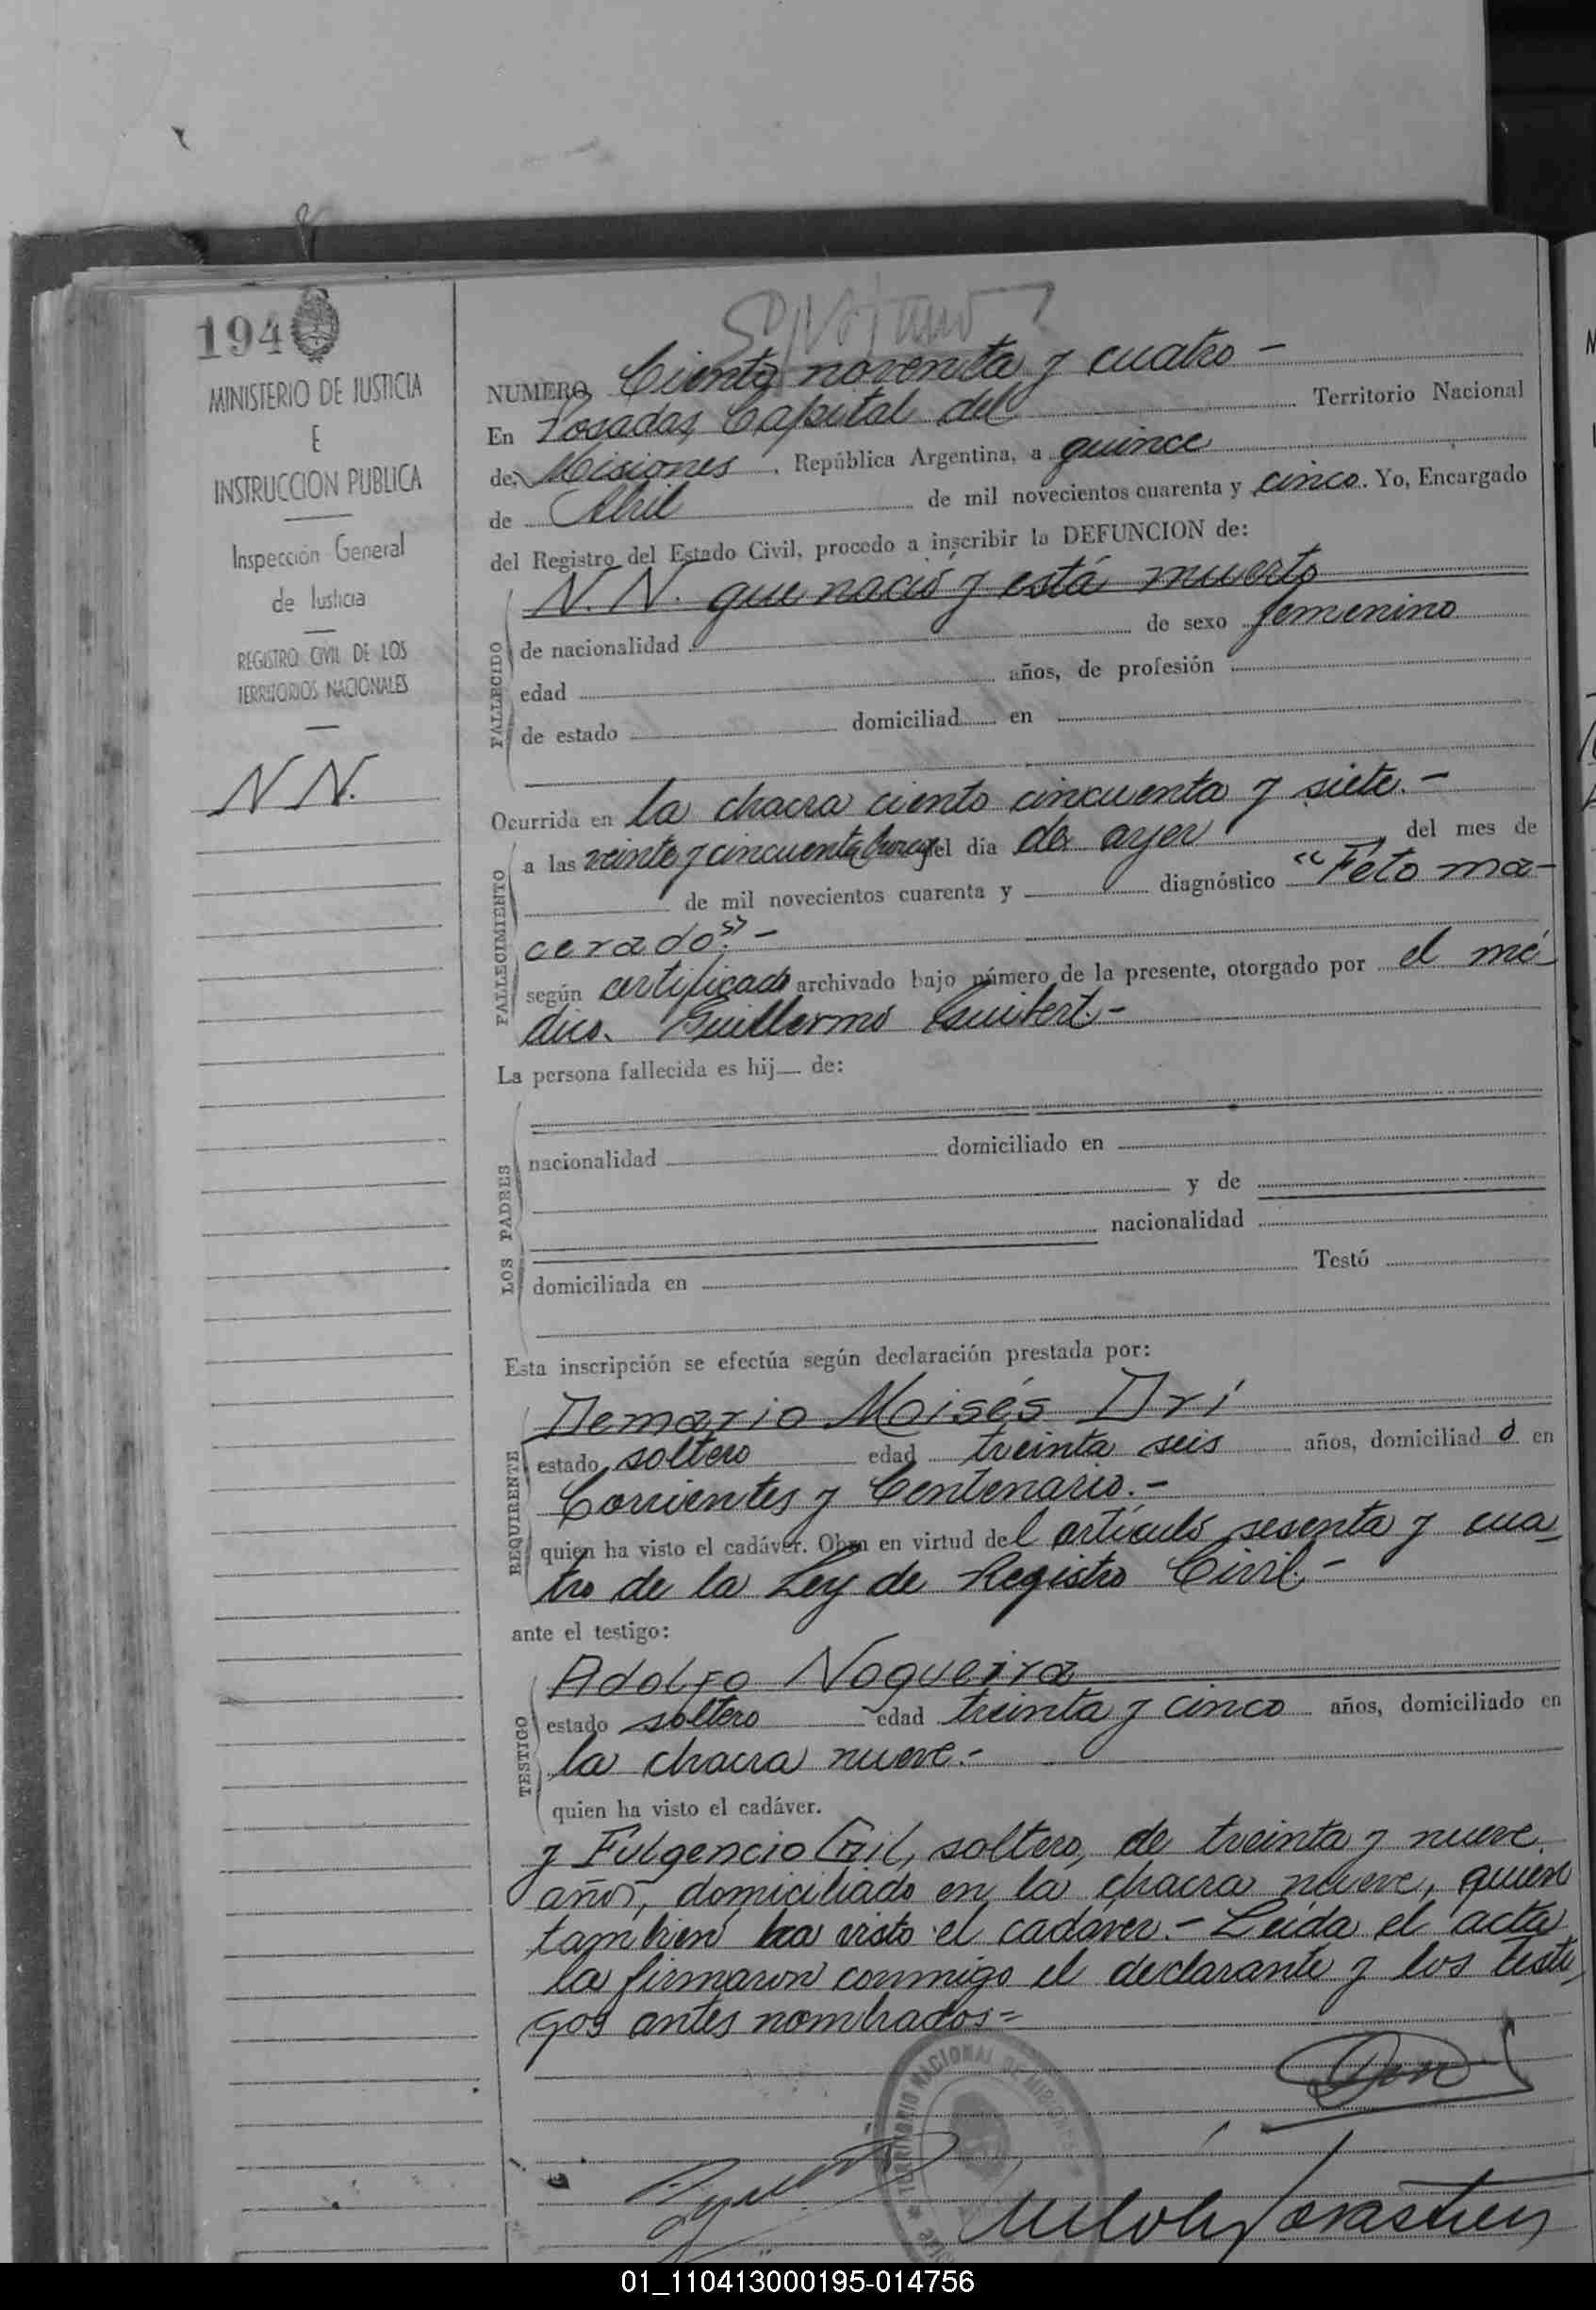 194
MINISTERIO DE JUSTICIA
E
INSTRUCCION PUBLICA
Inspección General
de Justicia
REGISTRO CIVIL DE LOS
TERRITORIOS NACIONALES
N N.
NUMERO Ciento noventa y cuatro -
En Posadas, Capital del Territorio Nacional
de Misiones, República Argentina, a quince
de Abril de mil novecientos cuarenta y cinco. Yo, Encargado
del Registro del Estado Civil, procedo a inscribir la DEFUNCION de:
N. N. que nació y está muerto
FALLECIDO
de nacionalidad de sexo femenino
edad años, de profesión
de estado domiciliad en
Ocurrida en la chacra ciento cincuenta y siete.-
FALLECIMIENTO
a las veinte y cincuenta horas del dia de ayer del mes de
de mil novecientos cuarenta y diagnóstico "Feto ma-
cerado".-
según certificado archivado bajo número de la presente, otorgado por el mé-
dico. Guillermo Guibert.-
La persona fallecida es hij de:
LOS PADRES
nacionalidad domiciliado en
y de
nacionalidad
domiciliada en Testó
Esta inscripción se efectúa según declaración prestada por:
REQUIRENTE
Demario Moisés Drí
estado soltero edad treinta seis años, domiciliad o en
Corrientes y Centenario.-
quien ha visto el cadáver. Obra en virtud del artículo sesenta y cua-
tro de la Ley de Registro Civil.-
ante el testigo:
TESTIGO
Adolfo Nogueira
estado soltero edad treinta y cinco años, domiciliado en
la chacra nueve.-
quien ha visto el cadáver.
y Fulgencio Gil, soltero, de treinta y nueve
años, domiciliado en la chacra nueve, quien
tambien ha visto el cadáver.- Leida el acta
la firmaron conmigo el declarante y los testi-
gos antes nombrados=
TERRITORIO NACIONAL DE MISIONES
01_110413000195-014756